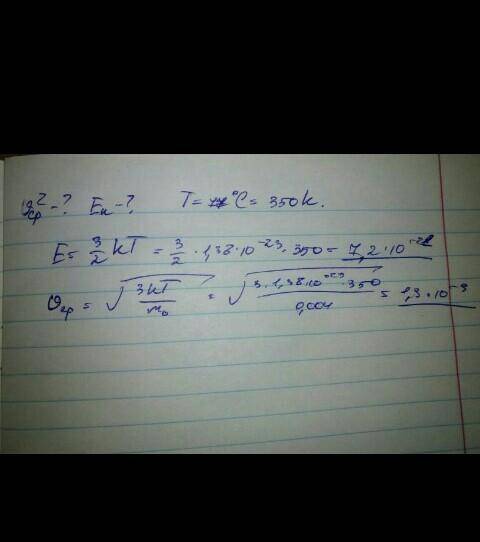 υ²ср - ? Eк - ? T = °C = 350 k.
E = 3/2 kT = 3/2 · 1,38 · 10⁻²³ · 350 = 7,2 · 10⁻²¹
υср = √(3kT/m₀) = √(3 · 1,38 · 10⁻²³ · 350/0,004) = 1,3 · 10⁻⁹